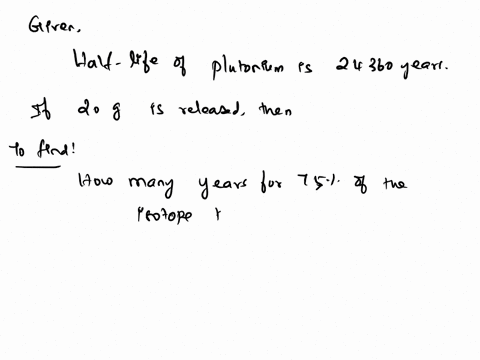 Given,
Half-life of plutonium is 24360 years.
If 20 g is released, then
To find!
How many years for 75% of the
isotope t